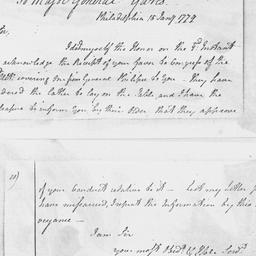 To Major General Gates.
Philadelphia 15 Jany 1779
Sir,
I did myself the Honor on the 3d Instant
acknowledge the Receipt of your Favor to Congress of the
covering one from General Philips to You — they have
ordered the latter to lay on the Table, and I have the
pleasure to inform you by their Order that they approve
of your Conduct relative to it — Lest my Letter
have miscarried, I repeat the Information by this
veyance —
I am Sir
your most Obedt & Hble Servt